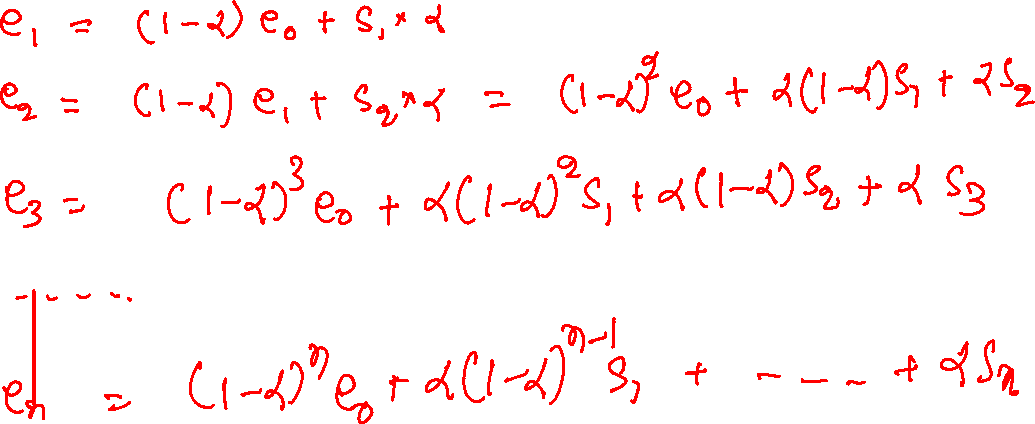 e₁ = (1-α) e₀ + S₁ * α
e₂ = (1-α) e₁ + S₂ * α = (1-α)² e₀ + α(1-α)S₁ + αS₂
e₃ = (1-α)³ e₀ + α(1-α)² S₁ + α(1-α) S₂ + α S₃
- - - - -.
eₙ = (1-α)ⁿ e₀ + α(1-α)ⁿ⁻¹ S₁ + - - - - + αSₙ